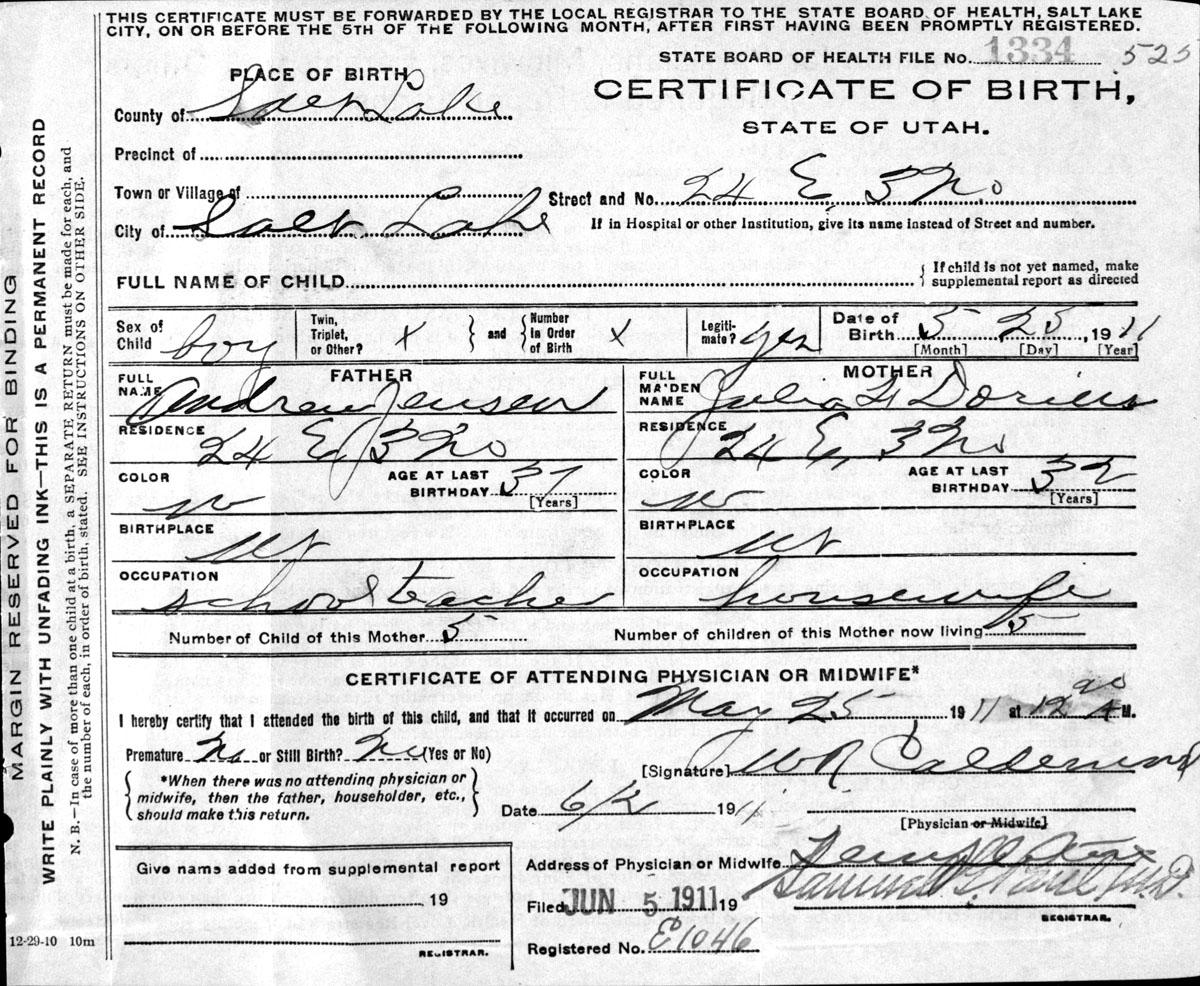 THIS CERTIFICATE MUST BE FORWARDED BY THE LOCAL REGISTRAR TO THE STATE BOARD OF HEALTH, SALT LAKE
CITY, ON OR BEFORE THE 5TH OF THE FOLLOWING MONTH, AFTER FIRST HAVING BEEN PROMPTLY REGISTERED.
STATE BOARD OF HEALTH FILE No. 1334 525
PLACE OF BIRTH
CERTIFICATE OF BIRTH,
STATE OF UTAH.
County of Salt Lake
Precinct of
Town or Village of
Street and No. 24 E 3 No
City of Salt Lake
If in Hospital or other Institution, give its name instead of Street and number.
FULL NAME OF CHILD
If child is not yet named, make
supplemental report as directed
Sex of Child boy
Twin, Triplet, or Other? X
and
Number in Order of Birth X
Legiti-mate? yes
Date of Birth 5 25, 1911
[Month] [Day] [Year]
FATHER
FULL NAME Andrew Jensen
RESIDENCE 24 E 3 No
COLOR w
AGE AT LAST BIRTHDAY 37
[Years]
BIRTHPLACE Ut
OCCUPATION school teacher
MOTHER
FULL MAIDEN NAME Julia Dorius
RESIDENCE 24 E 3 No
COLOR w
AGE AT LAST BIRTHDAY 32
[Years]
BIRTHPLACE Ut
OCCUPATION housewife
Number of Child of this Mother 5
Number of children of this Mother now living 5
CERTIFICATE OF ATTENDING PHYSICIAN OR MIDWIFE*
I hereby certify that I attended the birth of this child, and that it occurred on May 25 1911 at 12 A M.
Premature No or Still Birth? No (Yes or No)
[Signature] W R Calderwood
*When there was no attending physician or
midwife, then the father, householder, etc.,
should make this return.
Date 6/2 1911
[Physician or Midwife]
Give name added from supplemental report
19
REGISTRAR.
Address of Physician or Midwife
Filed JUN 5 1911 19
REGISTRAR.
Registered No. E1046
12-29-10 10m
MARGIN RESERVED FOR BINDING
WRITE PLAINLY WITH UNFADING INK—THIS IS A PERMANENT RECORD
N. B.—In case of more than one child at a birth, a SEPARATE RETURN must be made for each, and
the number of each, in order of birth, stated. SEE INSTRUCTIONS ON OTHER SIDE.